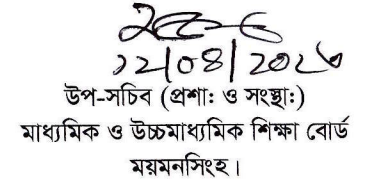 ২২/০৪/২০২৬
উপ-সচিব (প্রশা: ও সংস্থা:)
মাধ্যমিক ও উচ্চমাধ্যমিক শিক্ষা বোর্ড
ময়মনসিংহ।